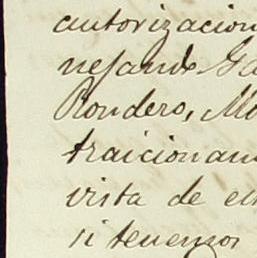 autorizacion
nejando Ga
Rondero, Mo
traicionam
vista de el
si tenemos